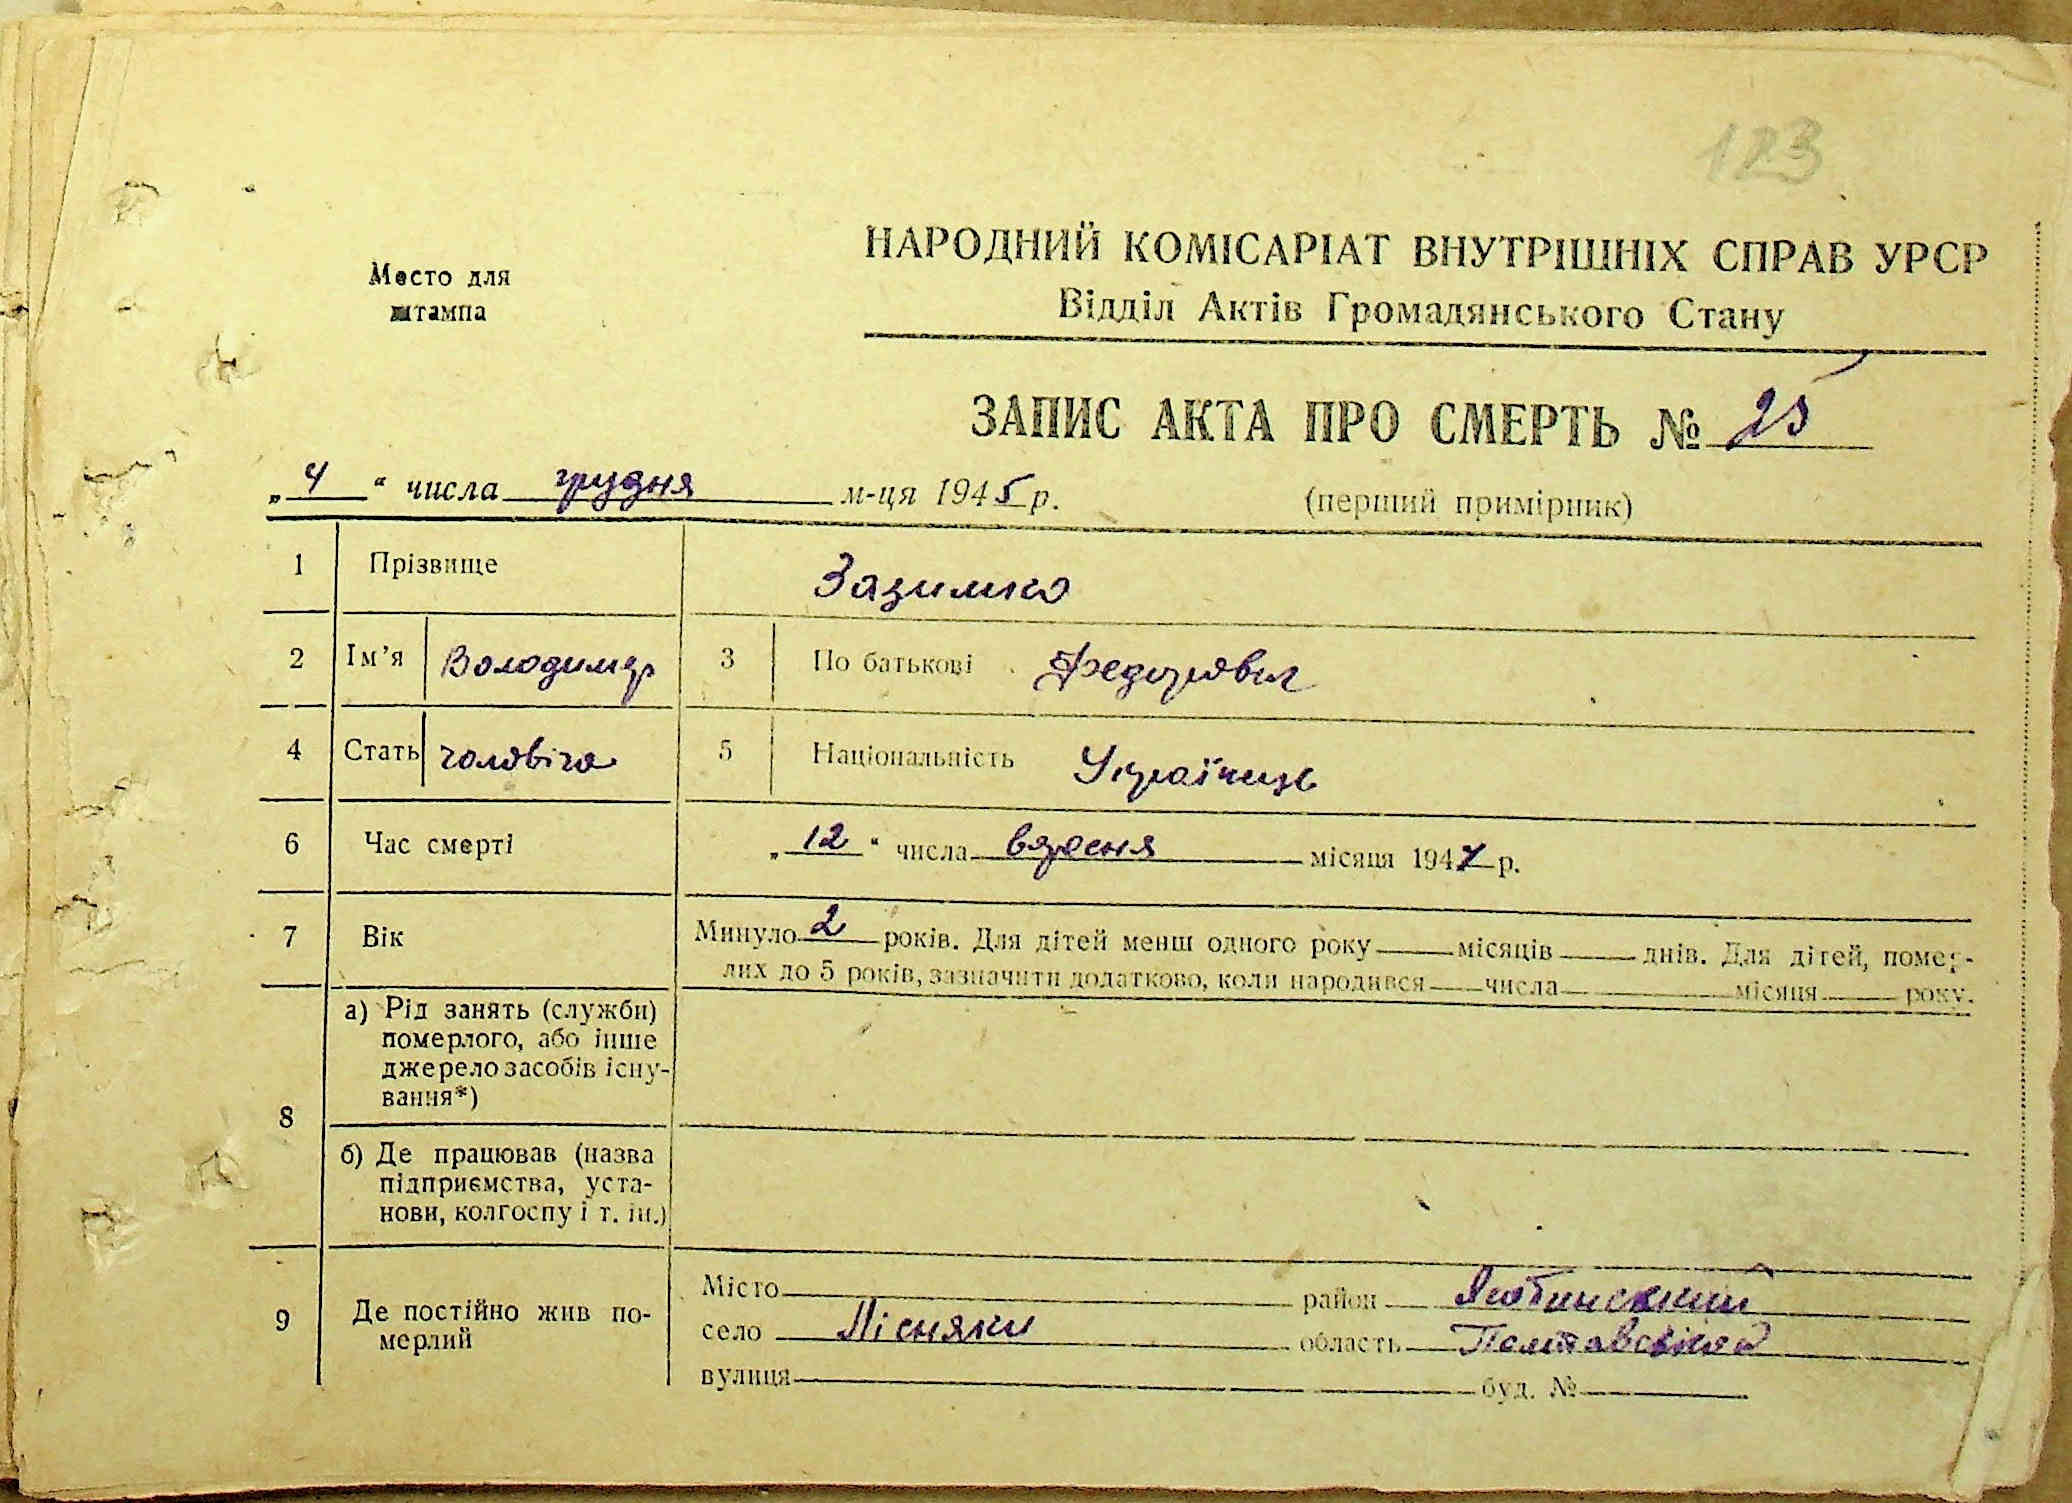 123
Место для
штампа
НАРОДНИЙ КОМІСАРІАТ ВНУТРІШНІХ СПРАВ УРСР
Відділ Актів Громадянського Стану
ЗАПИС АКТА ПРО СМЕРТЬ № 25
„ 4 “ числа грудня м-ця 1945 р. (перший примірник)
1 Прізвище Зазимко
2 Ім’я Володимир 3 По батькові Федорович
4 Стать чоловіча 5 Національність Українець
6 Час смерті „ 12 “ числа вересня місяця 194 р.
7 Вік Минуло 2 років. Для дітей менш одного року місяців днів. Для дітей, помер-
лих до 5 років, зазначити додатково, коли народився числа місяця року.
8 а) Рід занять (служби)
померлого, або інше
джерело засобів існу-
вання*)
б) Де працював (назва
підприємства, уста-
нови, колгоспу і т. ін.)
9 Де постійно жив по-
мерлий
Місто район Яготинський
село Лісняки область Полтавської
вулиця буд. №